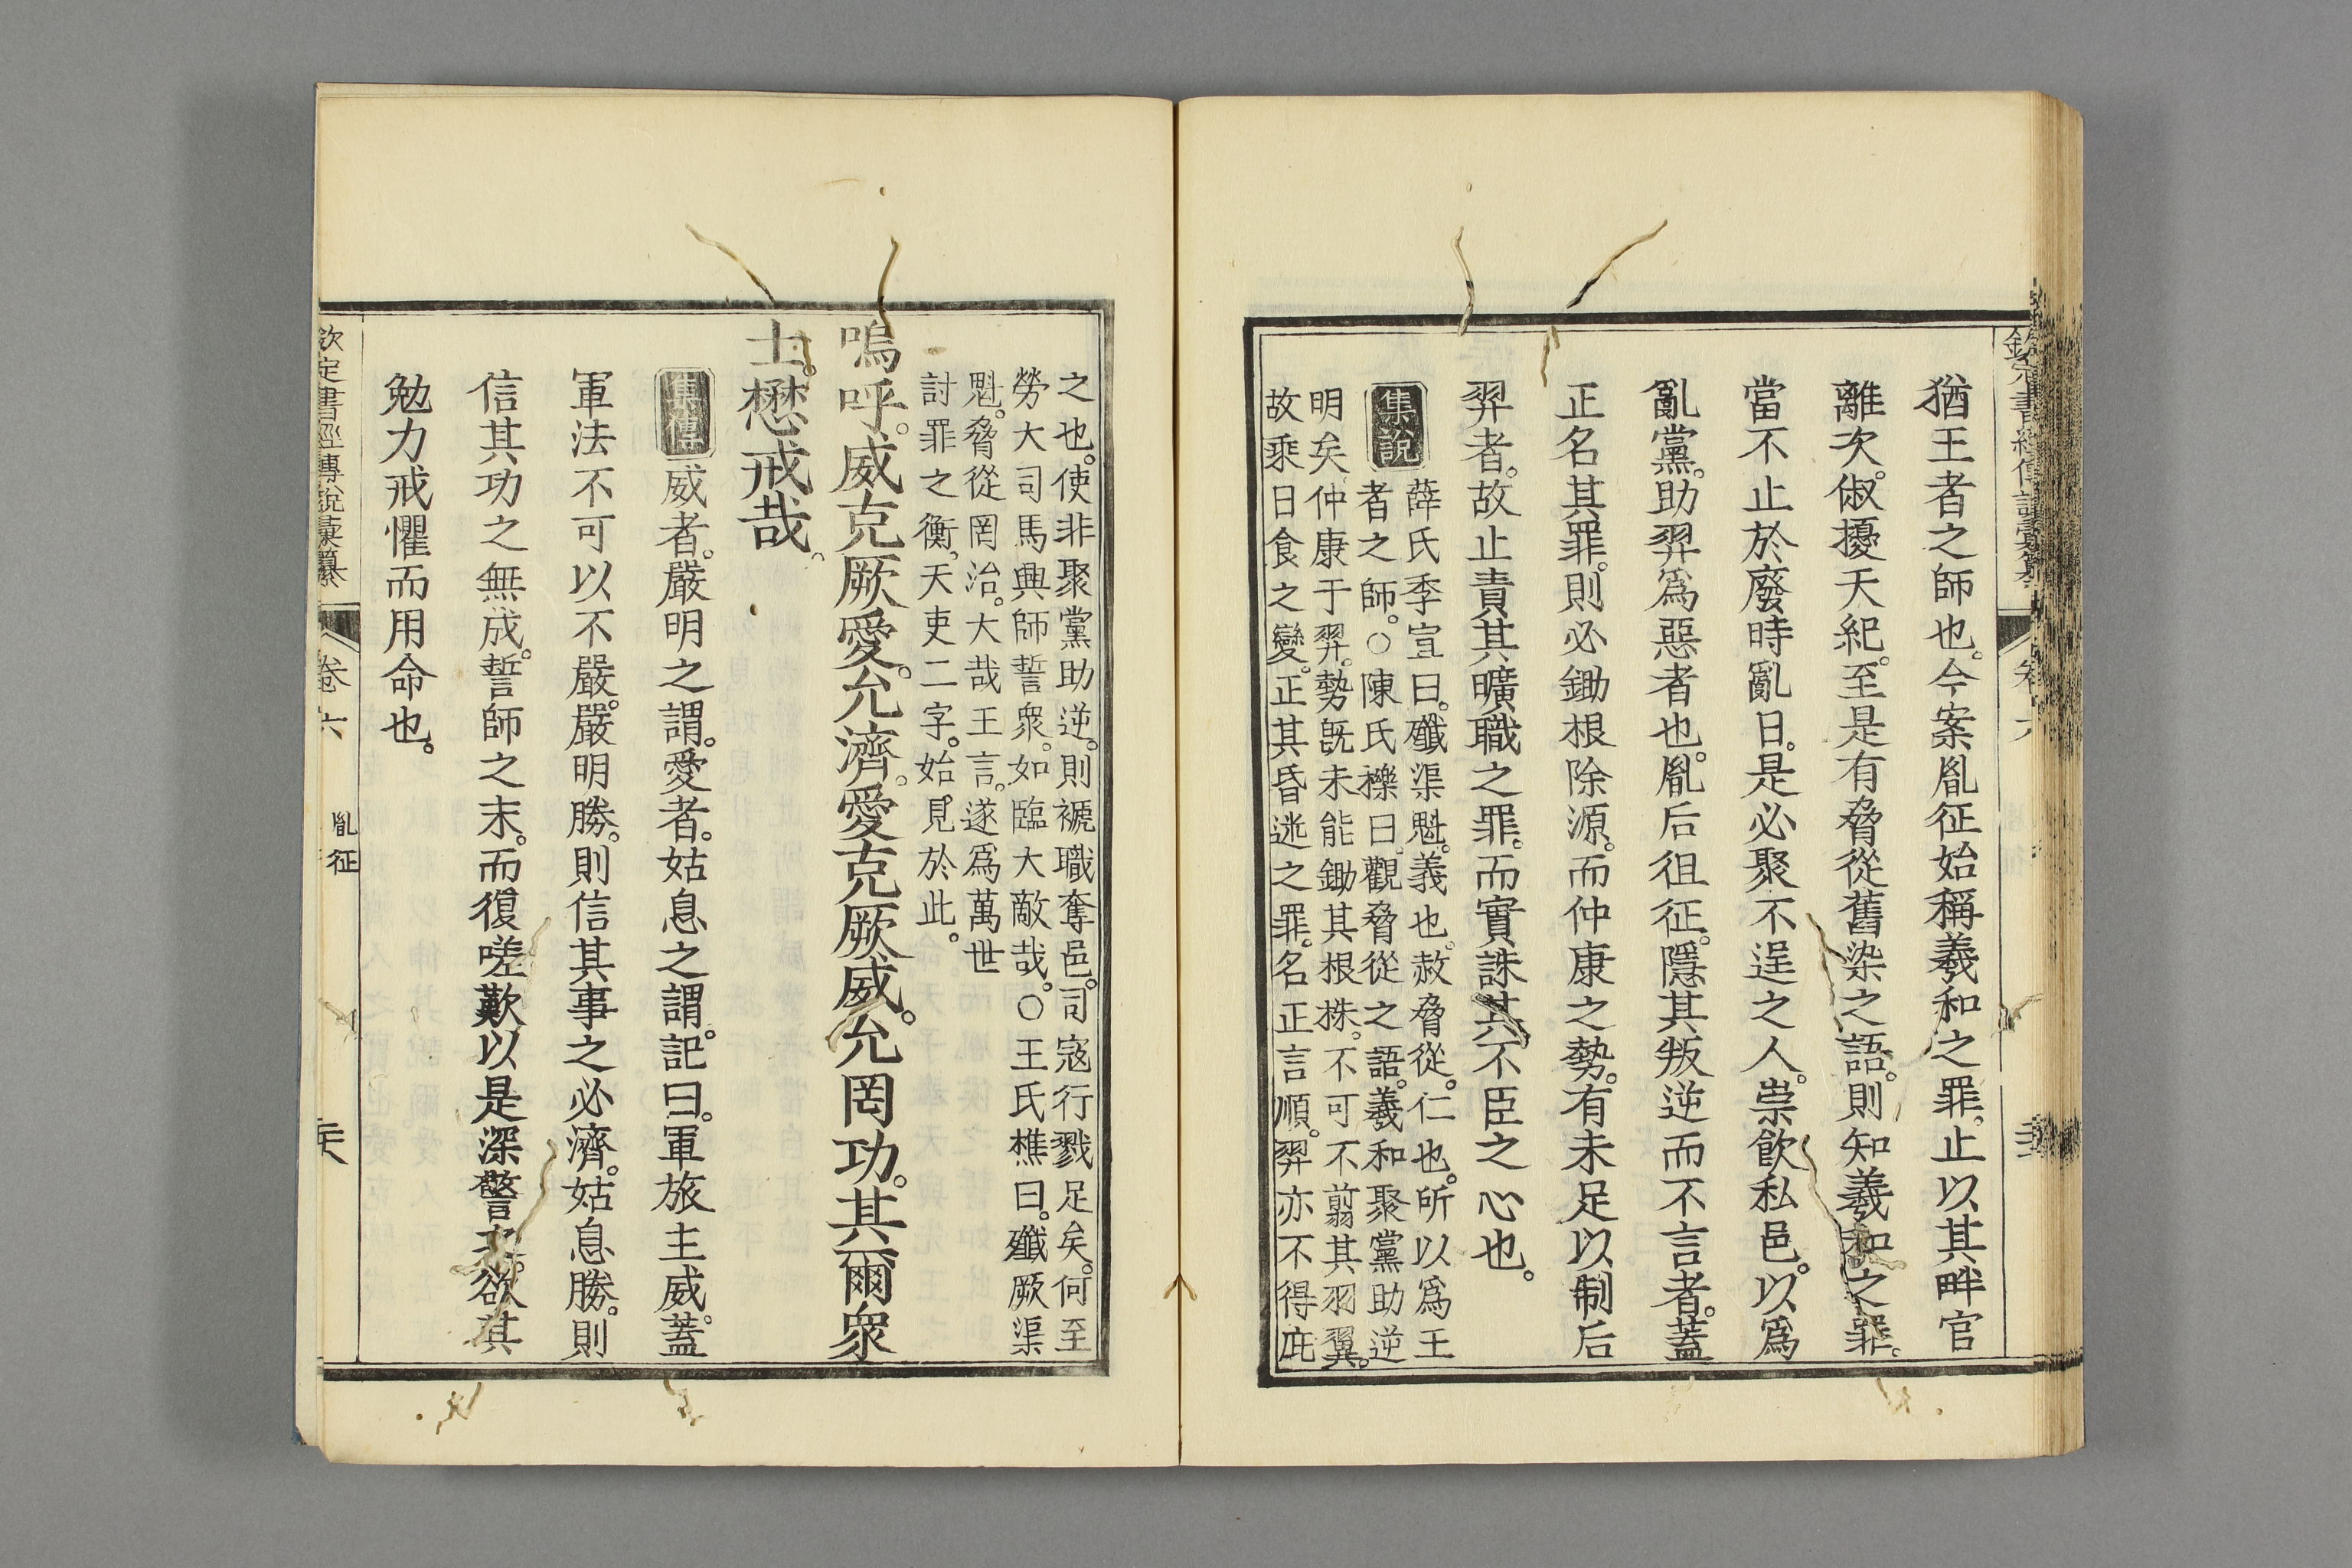 猶王者之師也。今案胤征始稱羲和之罪。止以其畔官
離次。俶擾天紀。至是有脅從舊染之語。則知羲和之罪。
當不止於廢時亂日。是必聚不逞之人。崇飲私邑。以爲
亂黨。助羿爲惡者也。胤后徂征。隱其叛逆而不言者。蓋
正名其罪。則必鋤根除源。而仲康之勢。有未足以制后
羿者。故止責其曠職之罪。而實誅其不臣之心也。
集說
薛氏季宣曰。殲渠魁。義也。赦脅從。仁也。所以爲王
者之師。○陳氏櫟曰。觀脅從之語。羲和聚黨助逆
明矣。仲康于羿。勢旣未能鋤其根株。不可不翦其羽翼。
故乘日食之變。正其昏迷之罪。名正言順。羿亦不得庇
之也。使非聚黨助逆。則褫職奪邑。司寇行戮足矣。何至
勞大司馬興師誓衆。如臨大敵哉。○王氏樵曰。殲厥渠
魁。脅從罔治。大哉王言。遂爲萬世
討罪之衡。天吏二字。始見於此。
嗚呼。威克厥愛。允濟。愛克厥威。允罔功。其爾衆
士。懋戒哉。
集傳
威者。嚴明之謂。愛者。姑息之謂。記曰。軍旅主威。蓋
軍法不可以不嚴。嚴明勝。則信其事之必濟。姑息勝。則
信其功之無成。誓師之末。而復嗟歎以是深警之。欲其
勉力戒懼而用命也。
欽定書經傳說彙纂
卷六
胤征